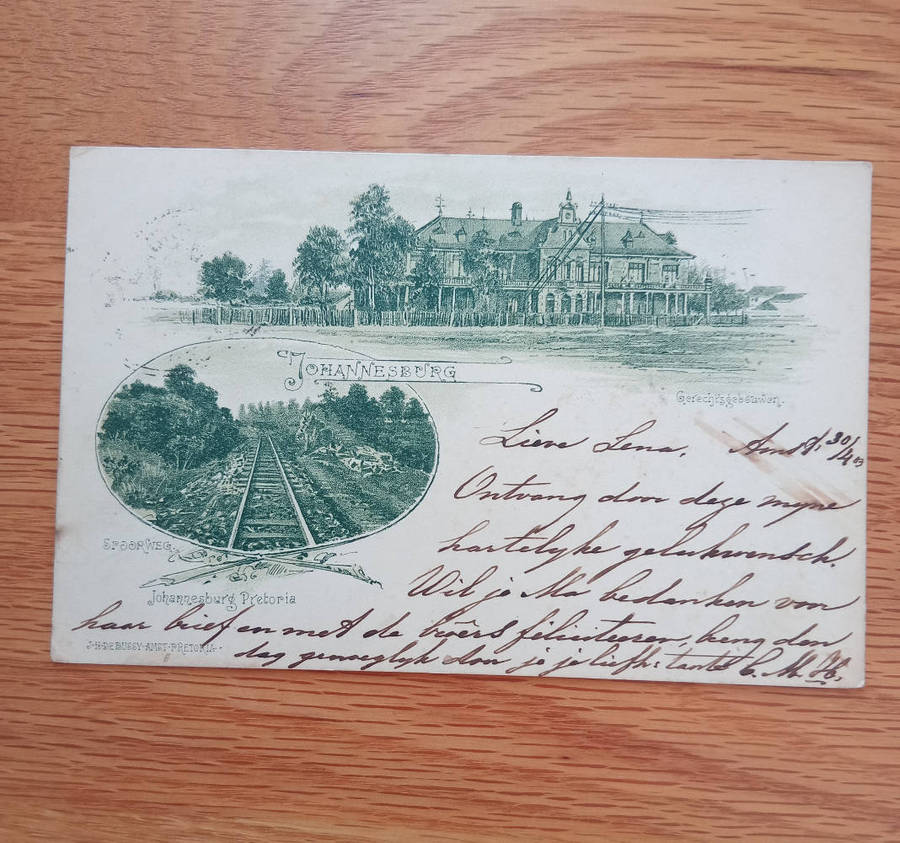 JOHANNESBURG
Gerechtsgebouwen.
Lieve Lena, Amst. 30/4 03
Ontvang door deze myne
hartelyke gelukwensch.
SPOORWEG
Wil je Ma bedanken voor
Johannesburg Pretoria
haar brief en met de broêrs féliciteeren, breng den
dag genoeglyk door je je liefh: tante C. M. H.
J.H. DE BUSSY · AMST · PRETORIA ·